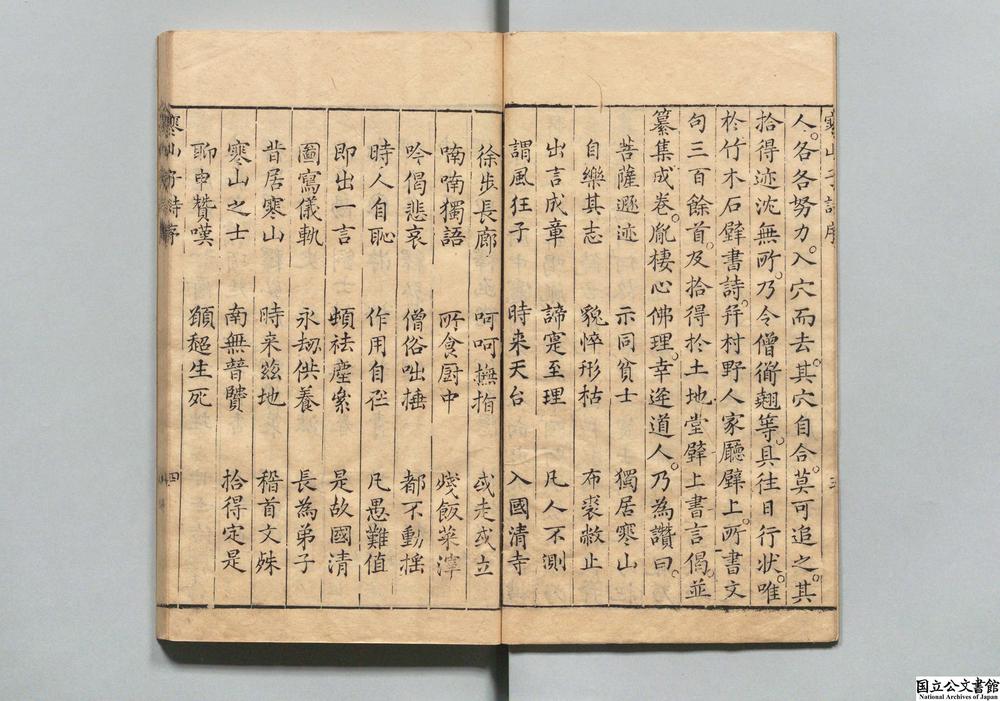 寒山子詩序 三
人。各各努力。入穴而去。其穴自合。莫可追之。其
拾得迹沈無所。乃令僧衜翹等。具往日行状。唯
於竹木石壁書詩。幷村野人家廳壁上。所書文
句三百餘首。及拾得於土地堂壁上書言偈。並
纂集成卷。胤棲心佛理。幸逢道人。乃為讚曰。
菩薩遯迹 示同貧士 獨居寒山
自樂其志 貌悴形枯 布裘敝止
出言成章 諦寔至理 凡人不測
謂風狂子 時来天台 入國清寺
徐步長廊 呵呵撫指 或走或立
喃喃獨語 所食厨中 残飯菜滓
吟偈悲哀 僧俗咄捶 都不動揺
時人自恥 作用自在 凡愚難值
即出一言 頓祛塵累 是故國清
圖寫儀軌 永劫供養 長為弟子
昔居寒山 時来兹地 稽首文殊
寒山之士 南無普賢 拾得定是
聊申贊嘆 願超生死
寒山子詩序 四
国立公文書館
National Archives of Japan